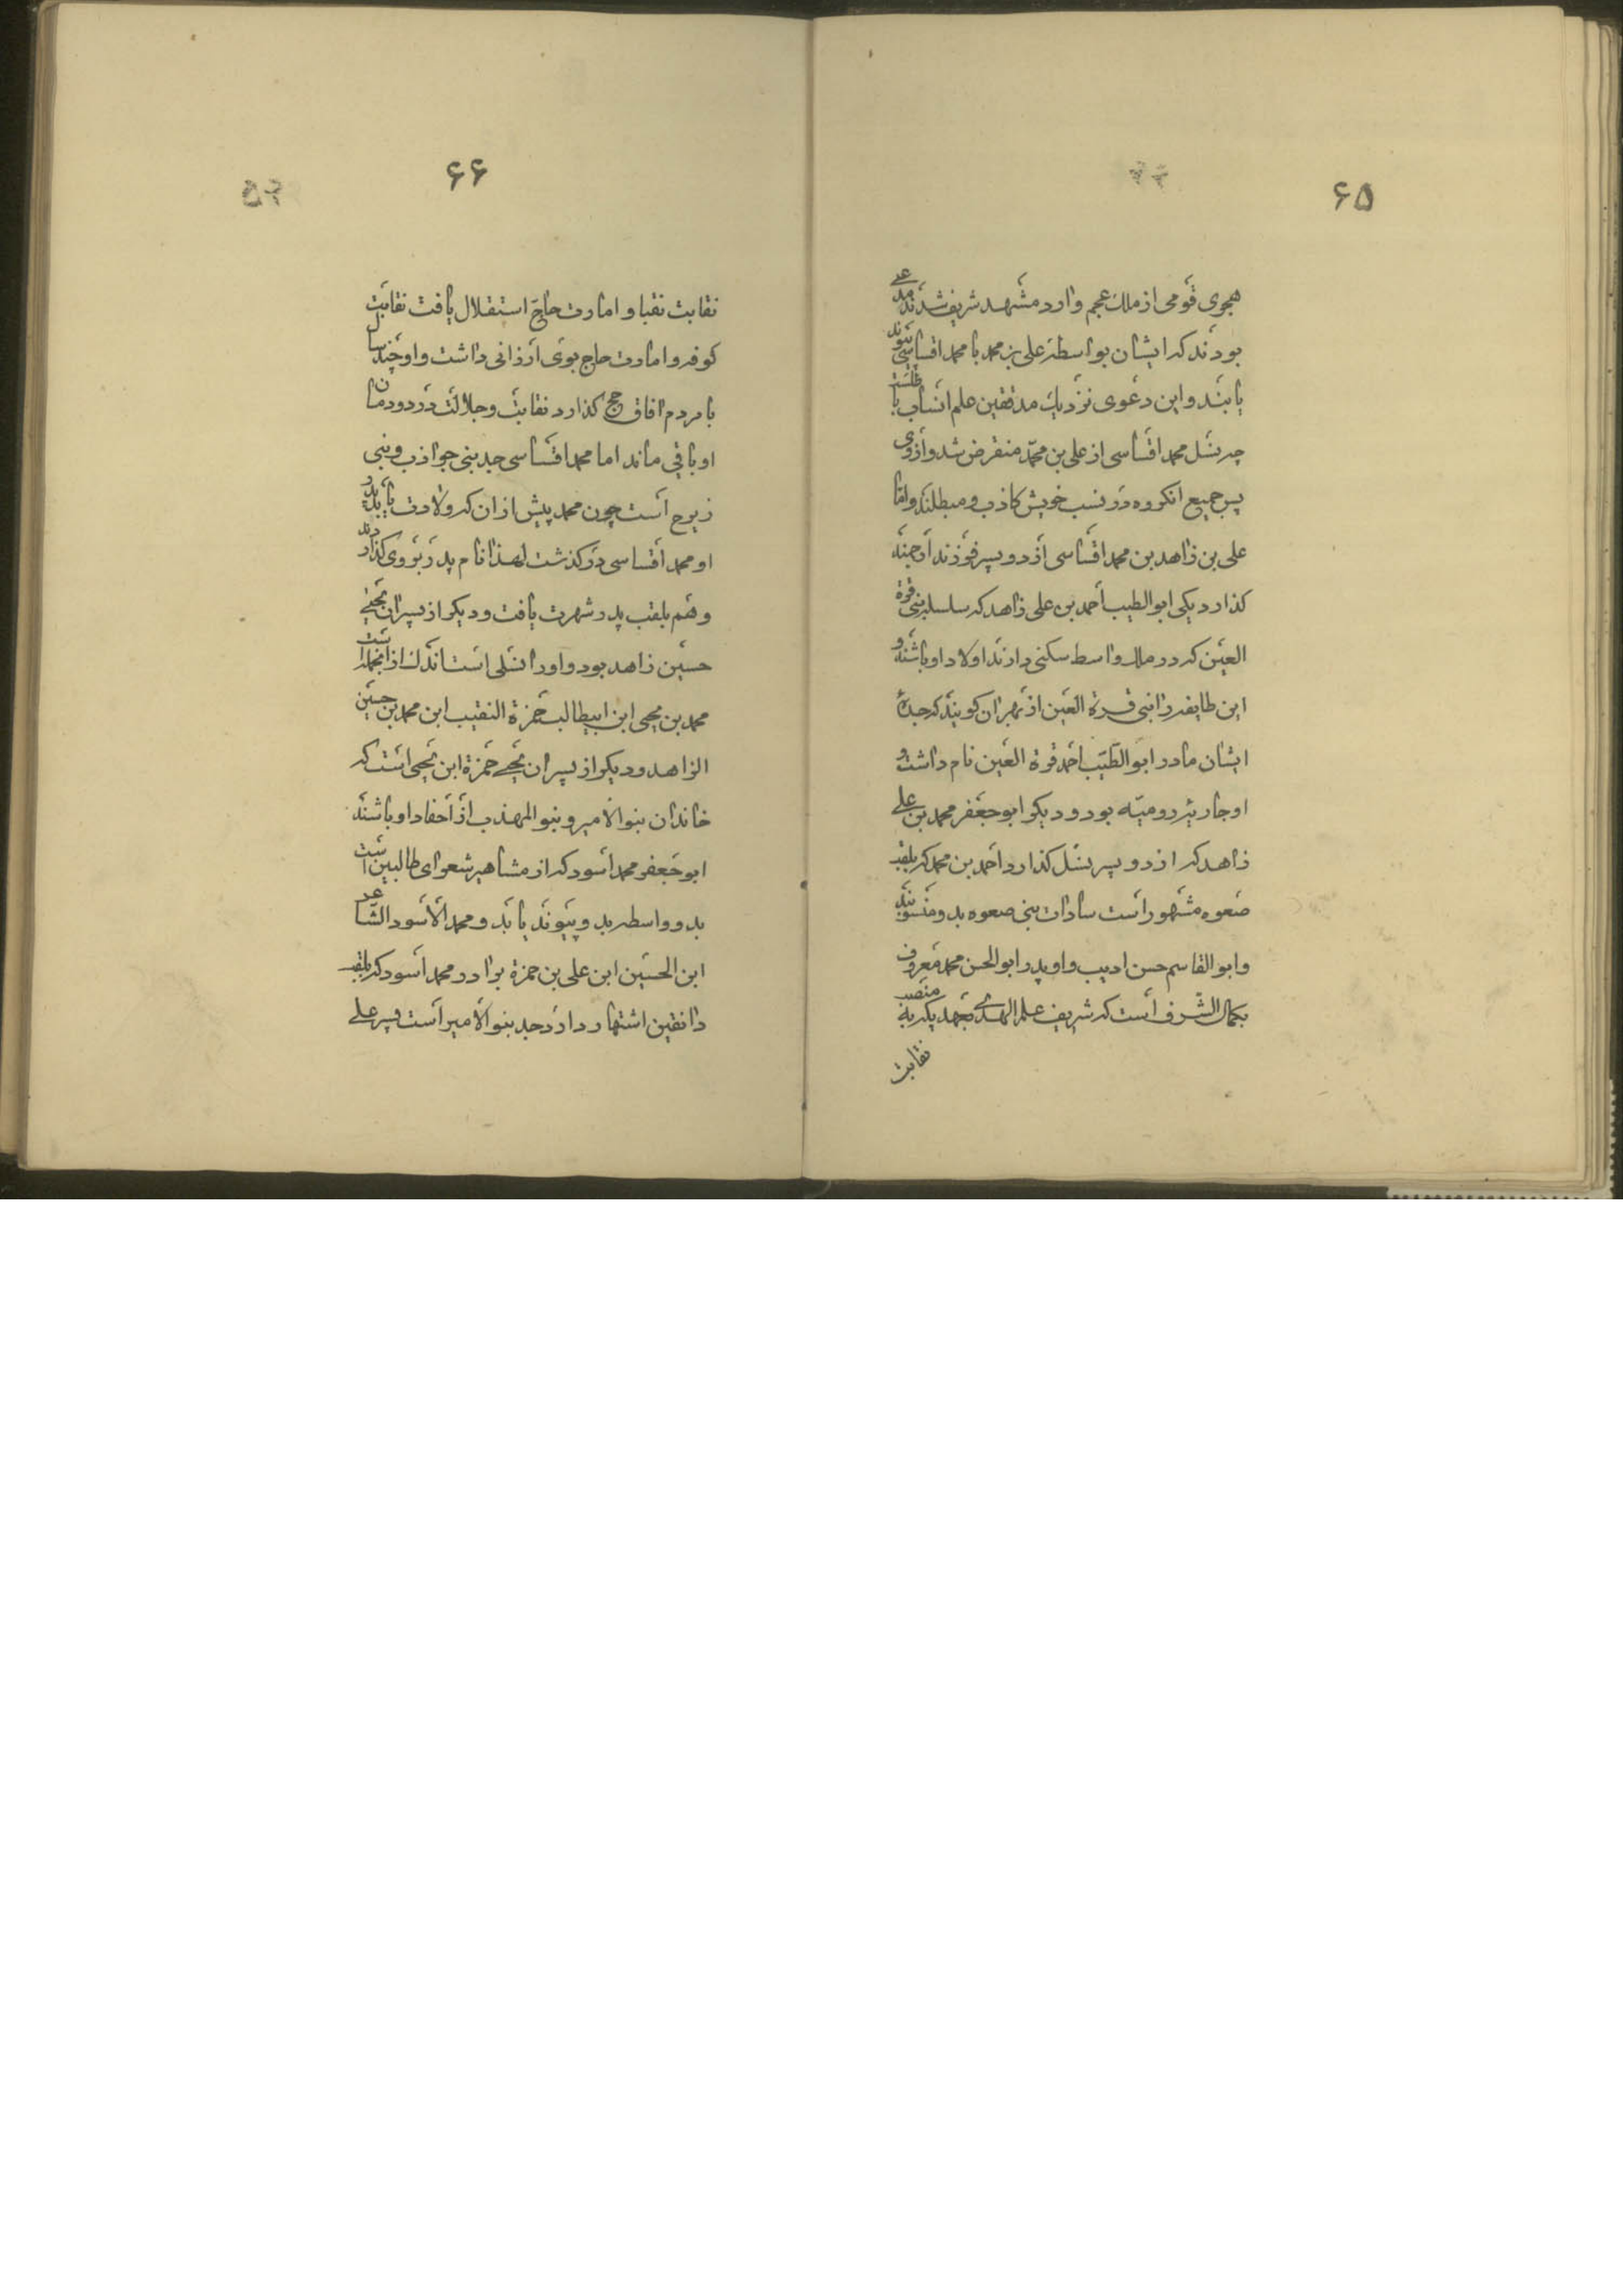 ۶۵
هجری قومی از ملک عجم وارد مشهد شریف شدند مدعی
بودند که ایشان بواسطه علی بن محمد با محمد اقساسی پیوند
یابند و این دعوی نزدیک مدققین علم انساب باطلست
چه نسل محمد اقساسی از علی بن محمّد منقرض شد و ازوی
پس جمیع انکروه در نسب خویش کاذب و مبطلند واما
علی بن زاهد بن محمد اقساسی از دو پسر فرزند ارجمند
کذارد یکی ابو الطیب احمد بن علی زاهد که سلسله بنی قرة
العین که در ملک واسط سکنی دارند اولاد او باشند و
این طایفه را بنی قرة العین از بهر ان کویند که جده
ایشان مادر ابو الطیّب احمد قرة العین نام داشت و
او جاریه رومیّه بود و دیکر ابو جعفر محمد بن علی
زاهد که از دو پسر نسل کذارد احمد بن محمد که بلقب
صعوه مشهور است سادات بنی صعوه بدو منسوبند
و ابو القاسم حسن ادیب و او پدر ابو الحسن محمد معروف
بکمال الشّرف است که شریف علم الهدی بعهدیکه به منصب
نقابت
۶۶
۵۳
نقابت نقبا و امارت حاجّ استقلال یافت نقابت
کوفه و امارت حاج بوی ارزانی داشت و او چند سال
با مردم افاق حج کذارد نقابت و جلالت در دودمان
او باقی ماند اما محمد اقساسی جد بنی جواذب و بنی
زبرج است چون محمد پیش از ان که ولادت یابد پدر
او محمد اقساسی در کذشت لهذا نام پدر بروی کذاردند
و هم بلقب پدر شهرت یافت و دیکر از پسران یحیی
حسین زاهد بود و اورا نسلی است اندک از انجمله است
محمد بن یحیی ابن ابیطالب حمزة النقیب ابن محمد بن حسین
الزاهد و دیکر از پسران یحیی حمزة ابن یحیی است که
خاندان بنو الامیر و بنو المهذب از احفاد او باشند
ابو جعفر محمد اسود که از مشاهیر شعرای طالبین است
بدو واسطه بدو پیوند یابد و محمد الاسود الشّاعر
ابن الحسین ابن علی بن حمزة برادر محمد اسود که بلقب
دانقین اشتهار دارد جد بنو الامیر است و پسر علی